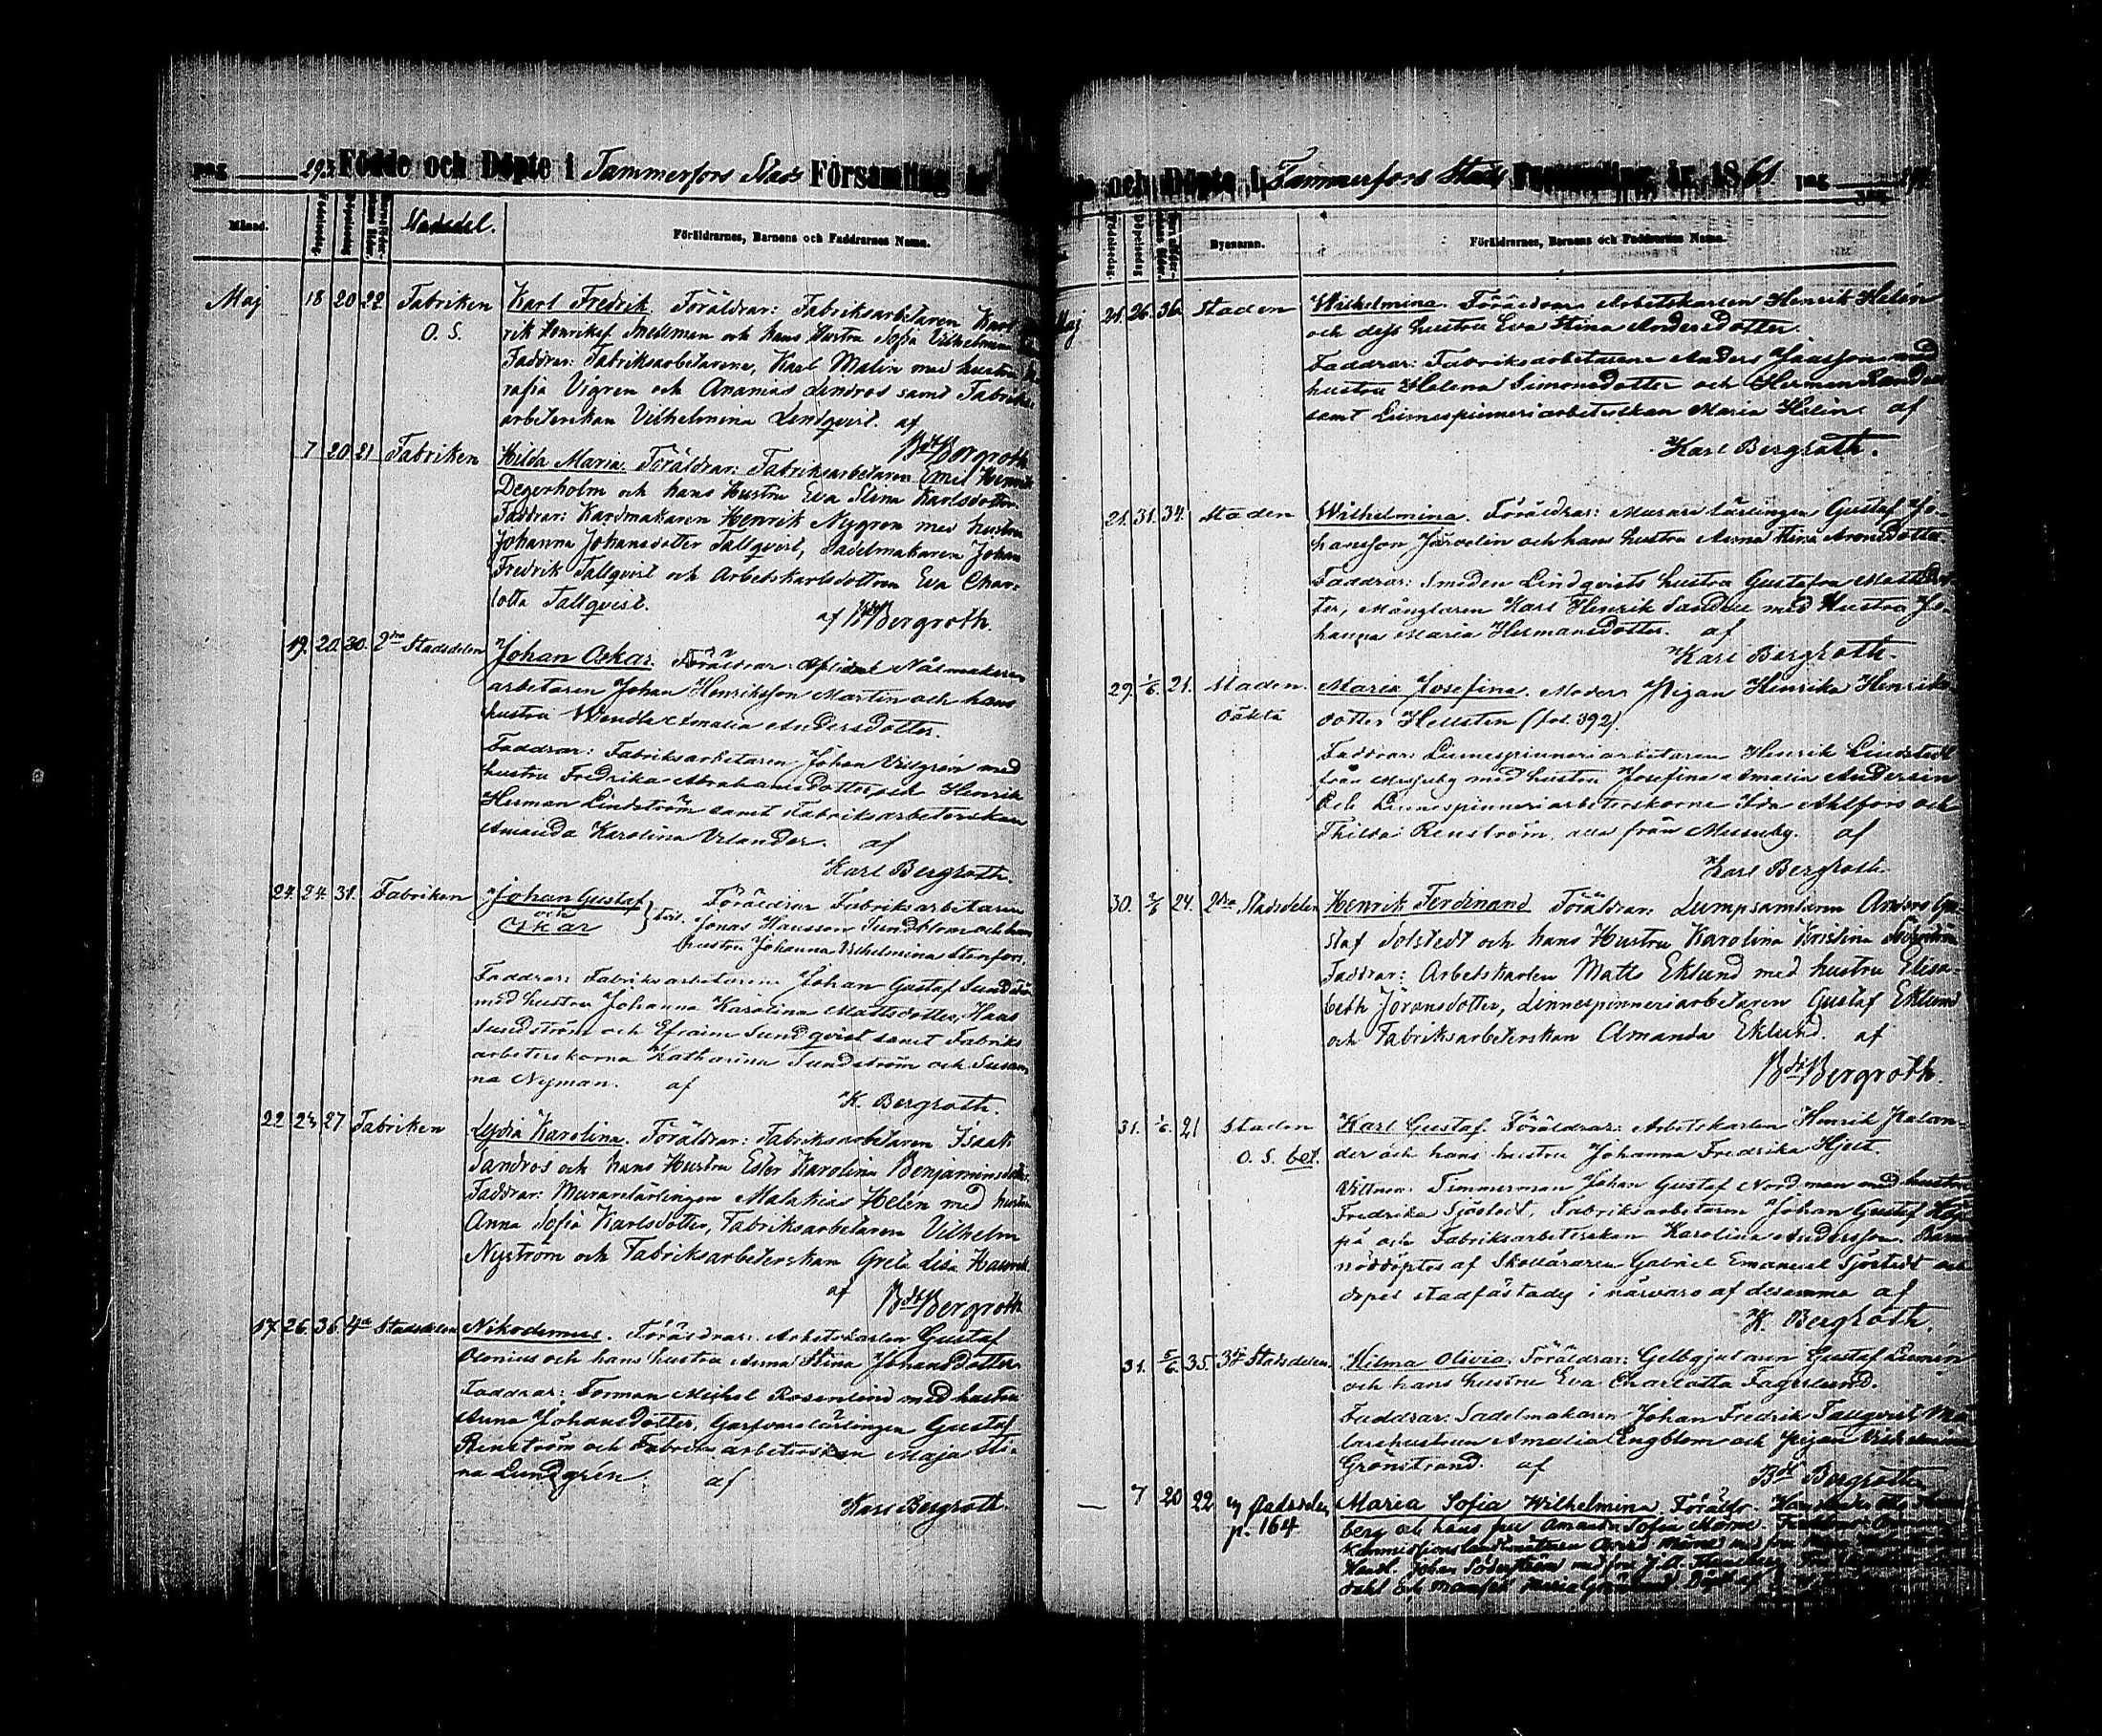 pag 293 Födde och Döpte i Tammerfors Stads Församling år
Månad. Födelsedag. Döpelsedag Stadsdel. Föräldrarnes, Barnens och Faddrarnes Namn.
Maj 18 20 22 Fabriken Karl Fredrik Föräldrar: Fabriksarbetaren Karl
O. S. och hans Hustru Sofia Vilhelmina
Faddrar: Fabriksarbetarene, Karl Malin med hustru
Vigren och Ananias Lindros samt Fabriks-
arbeterskan Vilhelmina Lindqvist. af
Bdt Bergroth
7 20 21 Fabriken Hilda Maria. Föräldrar: Fabriksarbetaren Emil Henrik
Degerholm och hans Hustru Eva Stina Karlsdotter
Faddrar: Kardmakaren Henrik Nygren med hustru
Johanna Johansdotter Tallqvist, Sadelmakaren Johan
Fredrik Tallqvist och Arbetskarlsdottren Eva Char-
lotta Tallqvist. af Bdt Bergroth.
19. 20. 30. 2dra Stadsdelen Johan Oskar. Föräldrar: Nålmakare
arbetaren Johan Henriksson Martin och hans
hustru Wendla Amalia Andersdotter.
Faddrar: Fabriksarbetaren Johan Vidgrén med
hustru Fredrika Abrahamsdotter och Henrik
Herman Lindström samt Fabriksarbeterskan
Amanda Karolina Velander. af
Karl Bergroth.
24. 24. 31. Fabriken Johan Gustaf Föräldrar Fabriksarbetaren
och Oskar Jonas Hansson Sundström och hans
hustru Johanna Wilhelmina Stenfors.
Faddrar: Fabriksarbetarene Johan Gustaf Sundström
med hustru Johanna Karolina Mattsdotter, Hans
Sundström och Efraim Sundqvist samt Fabriks
arbeterskorna Katharina Sundström och Susan-
na Nyman. af
K. Bergroth.
22 23 27 Fabriken Lydia Karolina. Föräldrar: Fabriksarbetaren Isaak
Sandros och hans Hustru Ester Karolina Benjaminsdotter.
Faddrar: Murarelärlingen Malakias Helén med hustru
Anna Sofia Karlsdotter, Fabriksarbetaren Vilhelm
Nyström och Fabriksarbeterskan Greta Lisa
af Bdt Bergroth
17. 26. 36. 4de Stadsdelen Nikodemus. Föräldrar: Arbetskarlen Gustaf
Olenius och hans hustru Anna Stina Johansdotter
Faddrar: Forman Michel Rosenlind med hustru
Anna Johansdotter, Garfvarelärlingen Gustaf
Renström och Fabriks arbeterskan Maja Sti-
na Lundgrén. af
Karl Bergroth.
och Döpte i Tammerfors Stads Församling år 1861. pag
Födelsedag. Döpelsedag Bynamn. Föräldrarnes, Barnens och Faddrarnes Namn.
Maj 21. 26. 36. Staden Wilhelmina. Föräldrar Arbetskarlen Henrik Helén
och dess hustru Eva Stina Andersdotter.
Faddrar: Fabriksarbetarene Anders Jansson med
hustru Helena Simonsdotter och Herman
samt Linnespinneriarbeterskan Maria Helén. af
Karl Bergroth.
21. 31. 34. Staden Wilhelmina. Föräldrar: Murare lärlingen Gustaf Jo-
hansson Järvelin och hans hustru Anna Stina Aronsdotter
Faddrar: Smeden Lindqvists hustru Gustafva Mattsdot-
ter, Månglaren Karl Henrik Sandell med Hustru Jo-
hanna Maria Hermansdotter. af
Karl Bergroth.
29. 1/6. 21. Staden. Maria Josefina. Moder Pigan Henrika Henriks-
oäkta dotter Hellsten (fol. 392).
Faddrar: Linnespinneriarbetaren Henrik Lindstedt
från Messuby med hustru Josefina Amalia Andersin
och Linnespinneriarbeterskorna Ida Ahlfors och
Thilda Renström, alla från Messuby. af
Karl Bergroth.
30. 2/6 24. 2dra Stadsdelen Henrik Ferdinand Föräldrar: Lumpsamlaren Anders Gu-
staf Solstedt och hans Hustru Karolina Kristina
Faddrar: Arbetskarlen Matts Eklund med hustru Elisa-
beth Jöransdotter, Linnespinneriarbetaren Gustaf Eklund
och Fabriksarbeterskan Amanda Eklund. af
Bdt Bergroth.
31. 1/6. 21 Staden Karl Gustaf Föräldrar: Arbetskarlen Henrik Kalan-
O. S. bet. der och hans hustru Johanna Fredrika Hjelt.
Vittnen: Timmerman Johan Gustaf Nordman med hustru
Fredrika Sjöstedt, Fabriksarbetaren Johan Gustaf
och Fabriksarbeterskan Karolina Andersson. Barnet
nöddöptes af Skolläraren Gabriel Emanuel Sjöstedt och
dopet stadfästades i närvaro af desamma af
K. Bergroth.
31. 5/6. 35. 3dje Stadsdelen. Hilma Olivia. Föräldrar: Gelbgjutaren Gustaf Lumén
och hans hustru Eva Charlotta Fagerlund.
Faddrar: Sadelmakaren Johan Fredrik Tallqvist Må-
larehustrun Amalia Engblom och Pigan Vilhelmina
Grönstrand. af Bdt Bergroth
— 7 20 22 stadsdelen Maria Sofia Wilhelmina. Föräldr.
p. 164 berg och hans fru Amanda Sofia
Kommissionslandtmätaren
Handl. Johan Söderström med fru
Maria Grönlund. Döpt af